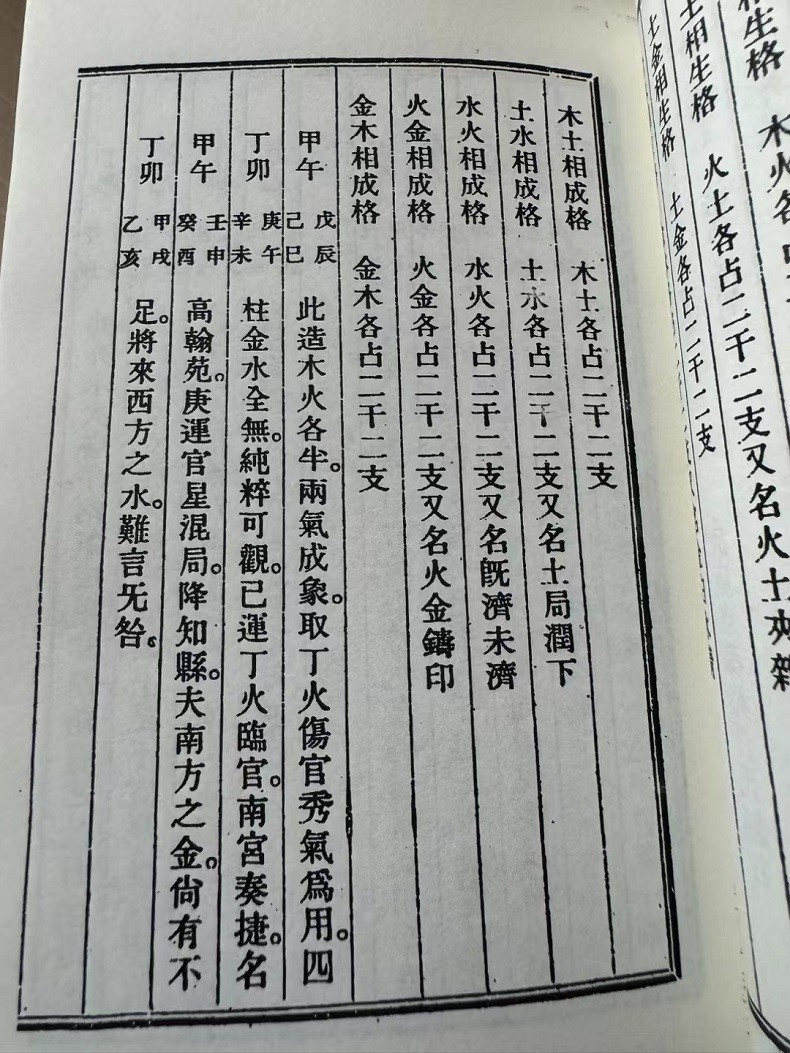 相生格 木火各
土相生格 火土各占二干二支又名火土夾雜
土金相生格 土金各占二干二支
木土相成格 木土各占二干二支
土水相成格 土水各占二干二支又名土局潤下
水火相成格 水火各占二干二支又名既濟未濟
火金相成格 火金各占二干二支又名火金鑄印
金木相成格 金木各占二干二支
甲午 戊辰 己巳 此造木火各半。兩氣成象。取丁火傷官秀氣爲用。四
丁卯 庚午 辛未 柱金水全無。純粹可觀。已運丁火臨官。南宮奏捷。名
甲午 壬申 癸酉 高翰苑。庚運官星混局。降知縣。夫南方之金。尙有不
丁卯 甲戌 乙亥 足。將來西方之水。難言旡咎。